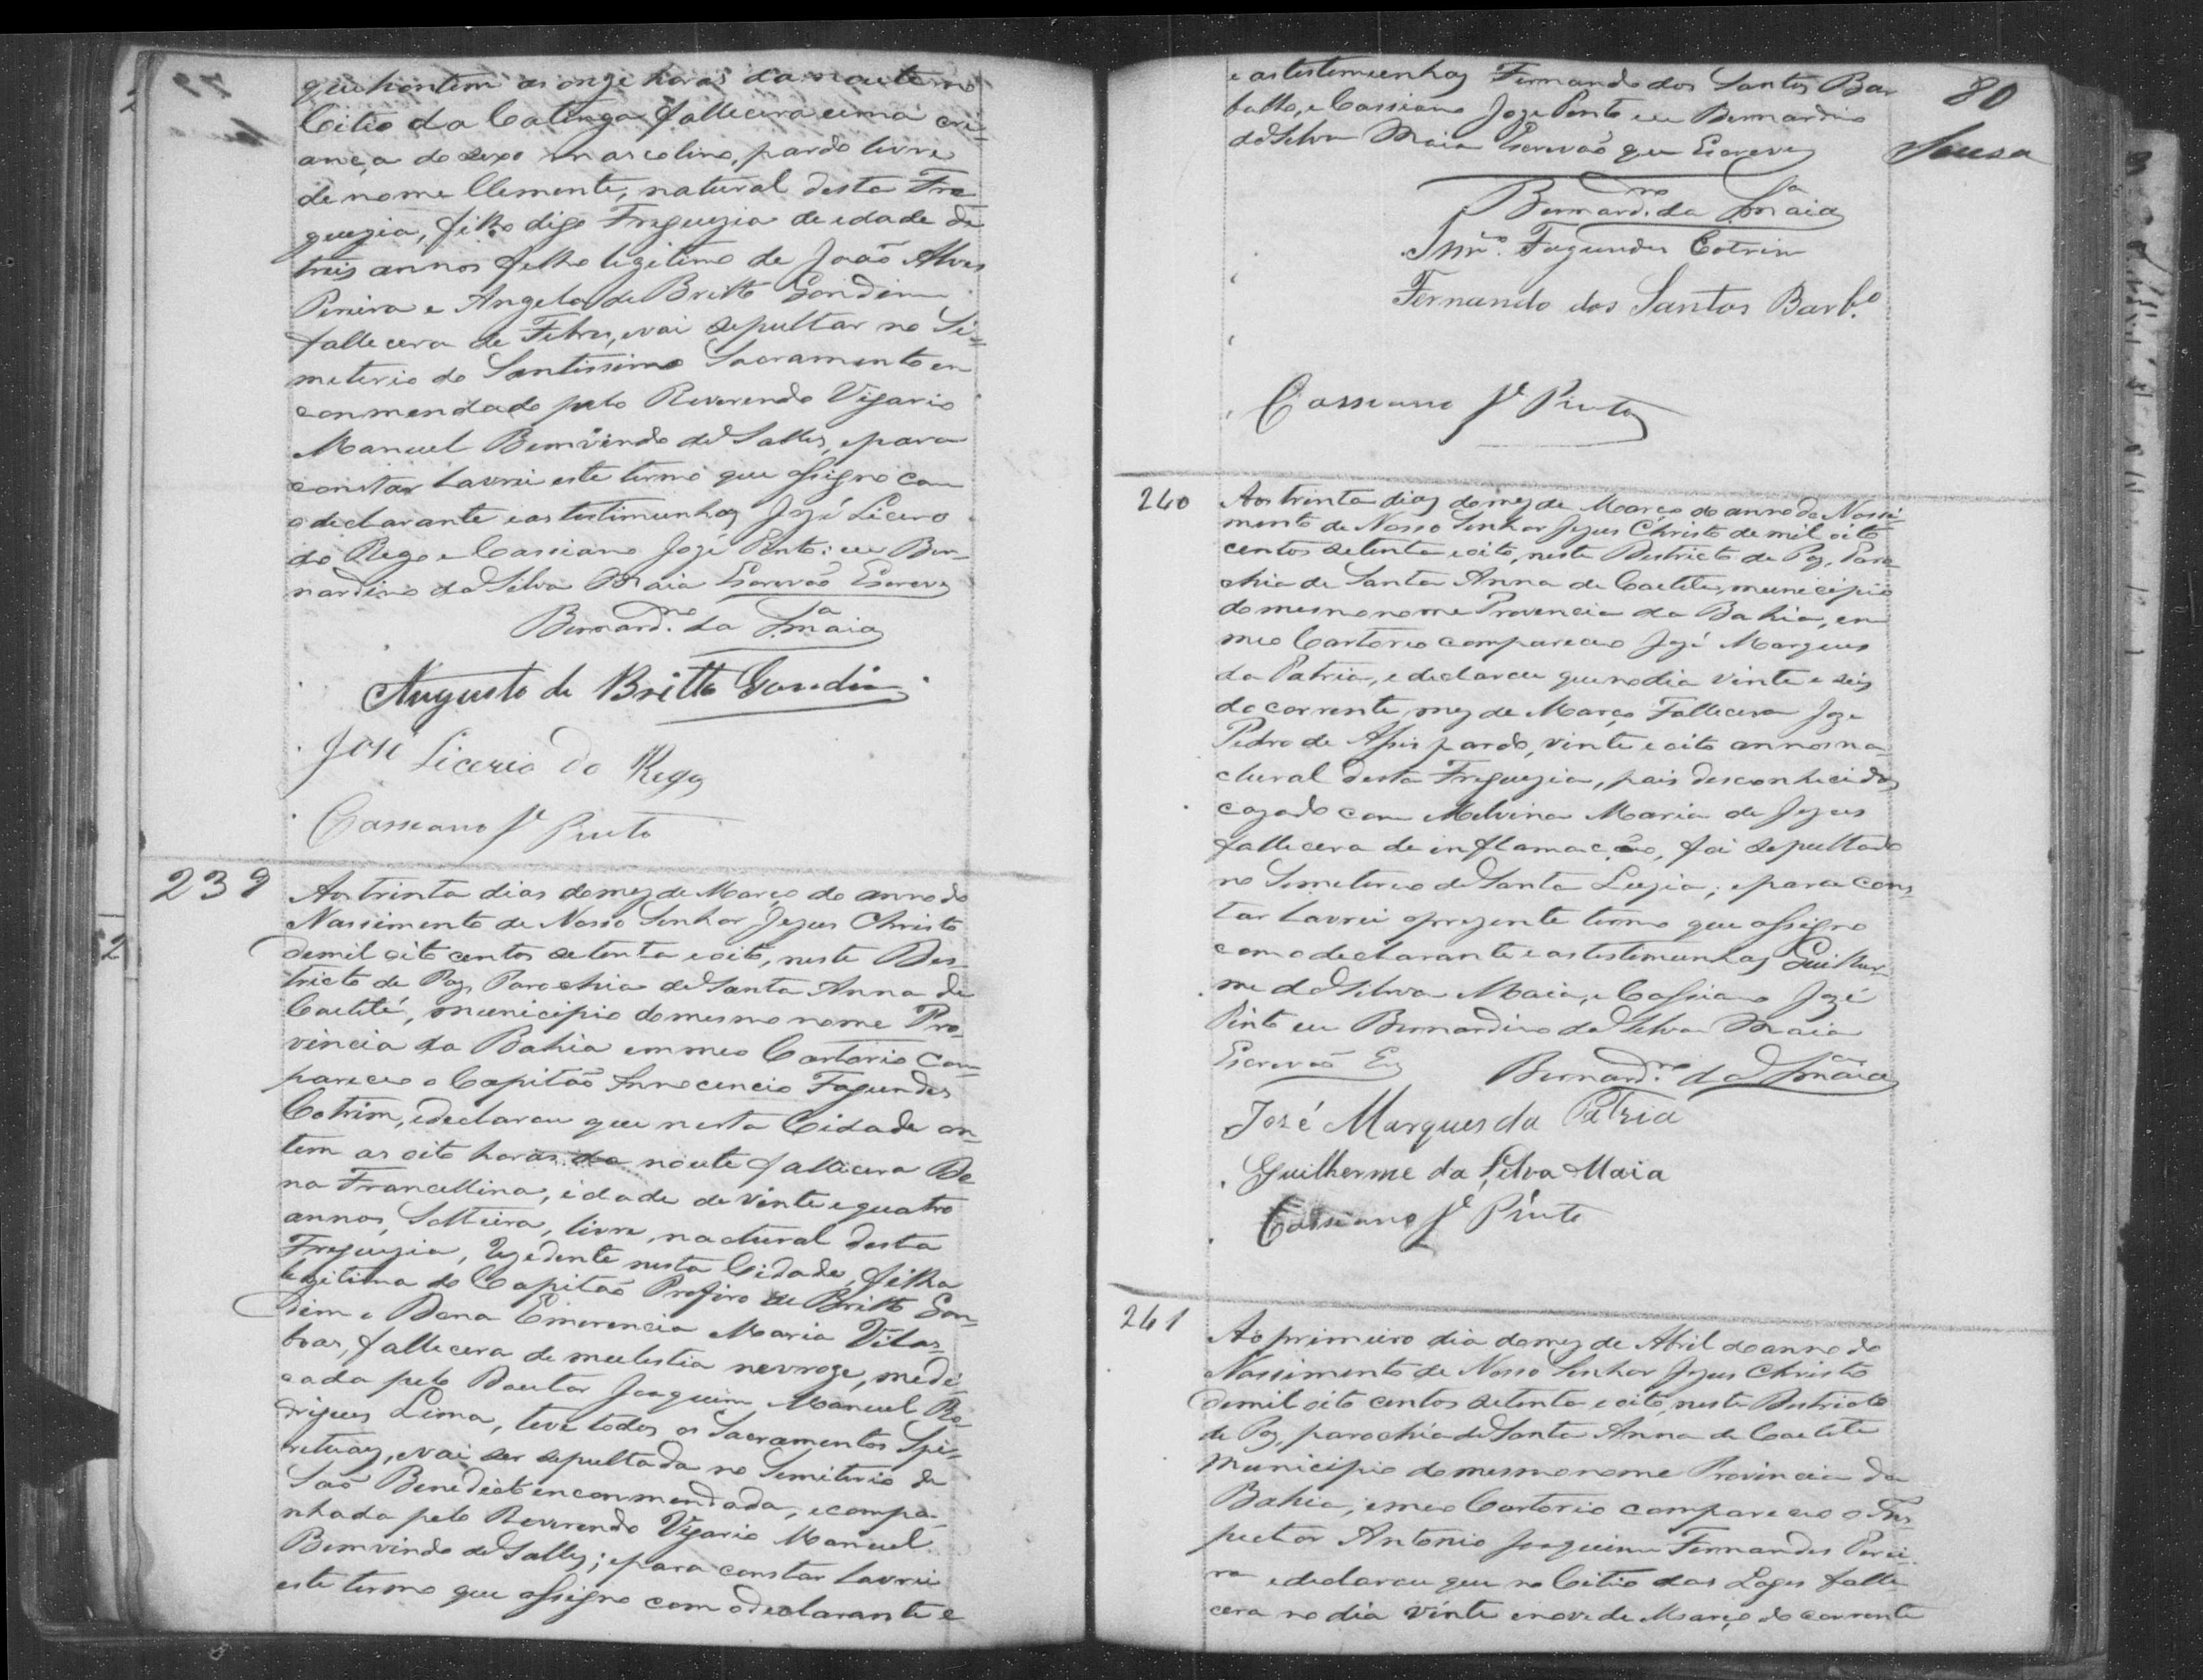 que hontem as onze horas da noute no
Citio da Catinga fallecera uma cri-
ança do sexo mascolino, pardo livre
de nome Clemente, natural desta Fre-
guezia, filho digo Freguezia de idade de
treis annos filho legitimo de João Alves
Pereira e Angela de Britto Gondim
fallecera de Febre, e vai sepultar no Si-
meterio do Santissimo Sacramento en
conmendado pelo Reverendo Vigario
Manuel Bemvindo de Salles, e para
constar lavrei este termo que assigno com
o declarante e as testimunhas José Licero
do Rego e Cassiano José Pinto: eu Ber-
nardino da Silva Maia Escrevão Escrevy
Bernard.no da S.a Maia
Augusto de Britto Gondim
José Licerio do Rego
Cassiano J.e Pinto
239
Aos trinta dias do mez de Março do anno do
Nassimento de Nosso Senhor Jezus Christo
de mil oito centos setenta e oito, neste Des-
tricto de Paz, Parochia de Santa Anna de
Caetité, municipio do mesmo nome Pro-
vincia da Bahia em meo Cartorio com-
pareceo o Capitão Innocencio Fagundes
Cotrim, e declarou que nesta Cidade on-
tem as oito horas da noute fallecera Do
na Francellina, idade de vinte e quatro
annos, Solteira, livre, nactural desta
Freguezia, rezedente nesta Cidade, filha
legitima do Capitão Profiro de Britto Gon-
dim e Dona Emerencia Maria Vilas-
boas, fallecera de mulestia nevroze, medi-
cada pelo Doutor Joaquim Manuel Ro-
drigues Lima, teve todos os Sacramentos Spi-
retuaz, e vai ser sepultada no Semiterio de
São Benedicto enconmendada, e compa-
nhada pelo Reverendo Vigario Manuel
Bemvindo de Salles; e para constar lavrei
este termo que assigno com o declarante e
80
Sousa
e as testemunhas Fernando dos Santos Bar
balho, e Cassiano Joze Pinto eu Bernardino
da Silva Maia Escrevão que Escrevy
Bernard.no da S.a Maia
Inn.o Fagundes Cotrim
Fernando dos Santos Barb.o
Cassiano J.e Pinto
240
Aos trinta dias do mez de Março do anno do Nassi-
mento de Nosso Senhor Jezus Christo de mil oito
centos setenta e oito, neste Destricto de Paz, Paro
chia de Santa Anna de Caetite, municipio
do mesmo nome Provencia da Bahia, em
meo Cartorio compareceo José Marques
da Patria, e declarou que no dia vinte e seis
do corrente mez de Março Fallecera Joze
Pedro de Assis pardo, vinte e oito annos na-
ctural desta Freguezia, pais desconhecidos
cazado com Melvina Maria de Jezus
fallecera de inflamacão, foi sepultado
no Semeterio de Santa Luzia; e para cons-
tar lavrei o prezente termo que assigno
com o declarante e as testemunhas Guilher-
me da Silva Maia, e Cassiano José
Pinto eu Bernardino da Silva Maia
Escrevão Ey Bernard.no da S.a Maia
José Marques da Patria
Guilherme da Silva Maia
Cassiano J.e Pinto
241
Ao primeiro dia do mez de Abril do anno do
Nassimento de Nosso Senhor Jezus Christo
de mil oito centos setenta e oito, neste Destricto
de Paz, parochia de Santa Anna de Caetite
Municipio do mesmo nome Provincia da
Bahia, e meo Cartorio compareceo o Ins-
pector Antonio Joaquim Fernandes Perei-
ra e declarou que no Citio das Lages falle
cera no dia vinte e nove de Março do corrente